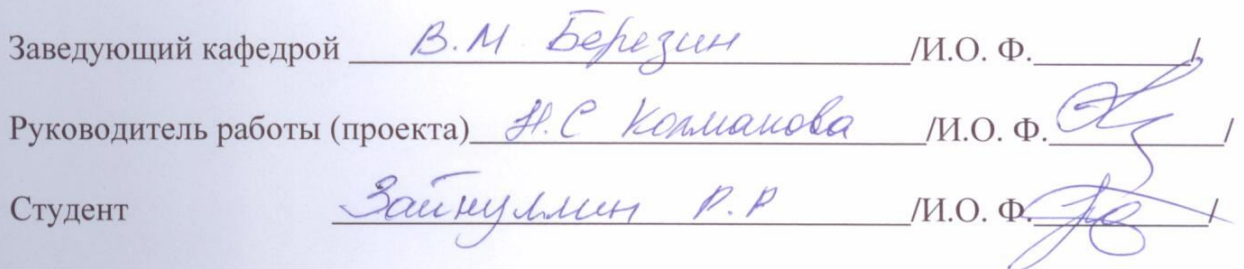 Заведующий кафедрой В.М. Березин /И.О. Ф. /
Руководитель работы (проекта) Н.С Колманова /И.О. Ф. /
Студент Зайнуллин Р.Р /И.О. Ф. /